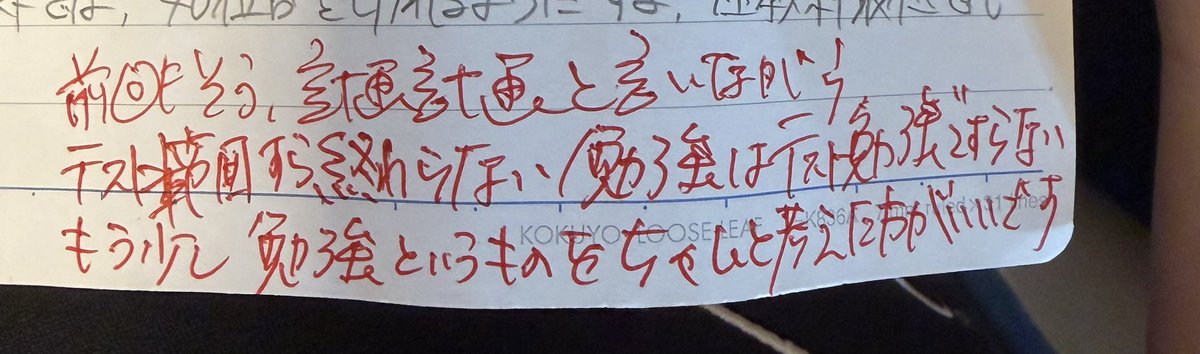 前回もそう、計画計画と言いながら
テスト範囲すら終わらない勉強はテスト勉強ですらない
もう少し勉強というものをちゃんと考えた方がいいです
KOKUYO LOOSE-LEAF